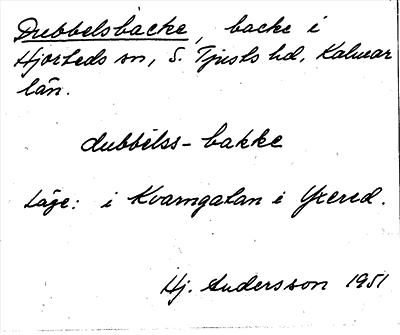 Dubbelsbacke, backe i
Hjorteds sn, S. Tjusts hd, Kalmar
län.
dubbelss-bakke
Läge: i Kvarngatan i
Hj. Andersson 1951